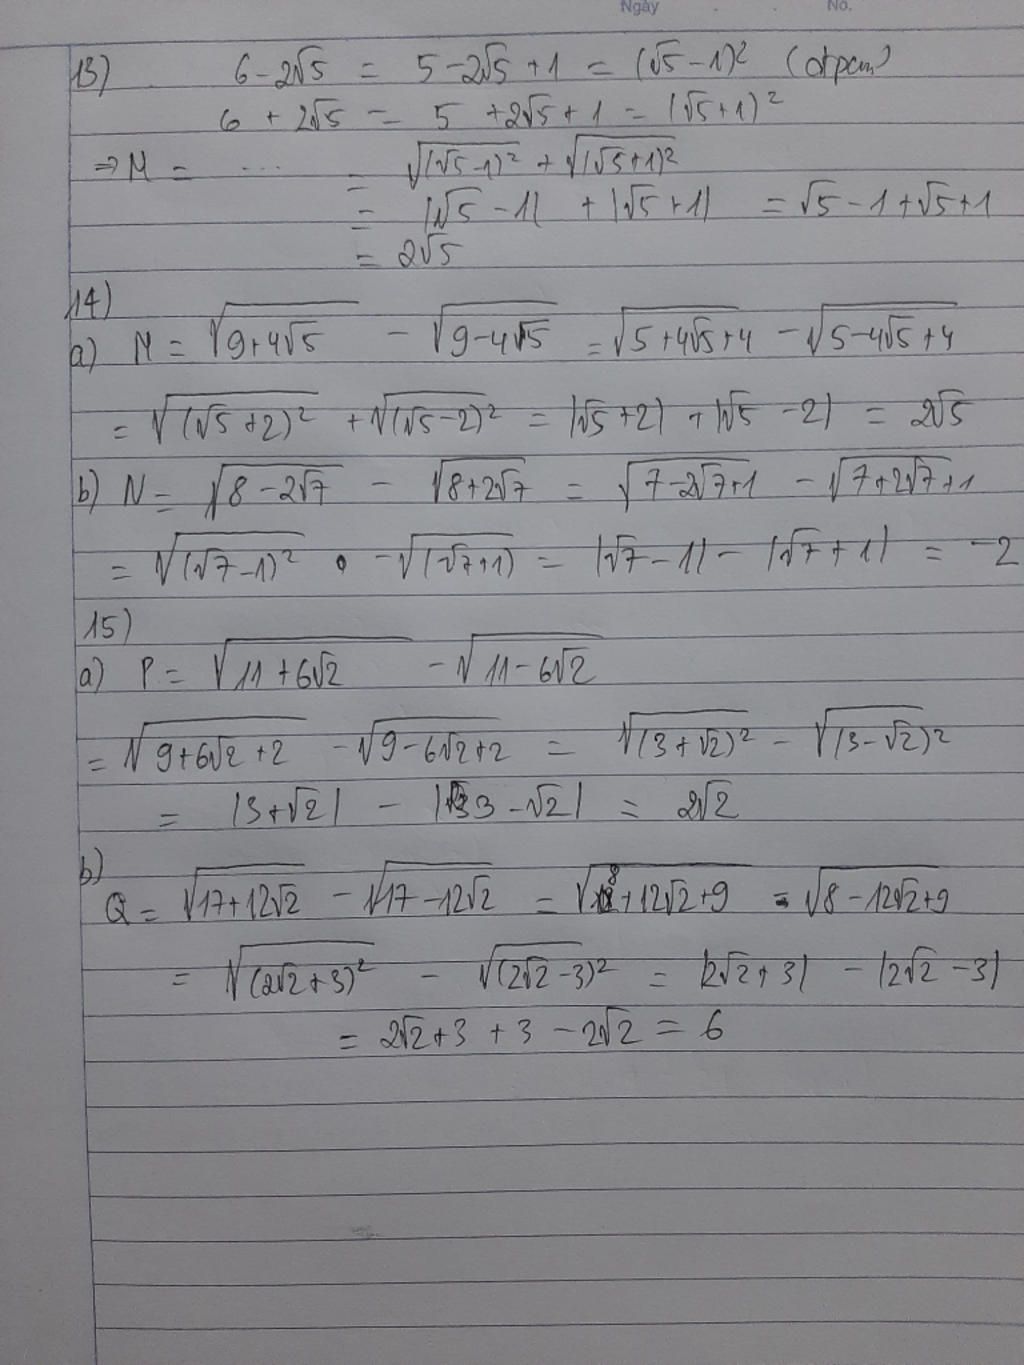 Ngày . . No.
13) 6 - 2√5 = 5 - 2√5 + 1 = (√5 - 1)² (đpcm)
6 + 2√5 = 5 + 2√5 + 1 = (√5 + 1)²
⇒ M = ... = √(√5 - 1)² + √(√5 + 1)²
= |√5 - 1| + |√5 + 1| = √5 - 1 + √5 + 1
= 2√5
14)
a) M = √9 + 4√5 - √9 - 4√5 = √5 + 4√5 + 4 - √5 - 4√5 + 4
= √(√5 + 2)² + √(√5 - 2)² = |√5 + 2| + |√5 - 2| = 2√5
b) N = √8 - 2√7 - √8 + 2√7 = √7 - 2√7 + 1 - √7 + 2√7 + 1
= √(√7 - 1)² - √(√7 + 1) = |√7 - 1| - |√7 + 1| = -2
15)
a) P = √11 + 6√2 - √11 - 6√2
= √9 + 6√2 + 2 - √9 - 6√2 + 2 = √(3 + √2)² - √(3 - √2)²
= |3 + √2| - |3 - √2| = 2√2
b)
Q = √17 + 12√2 - √17 - 12√2 = √8 + 12√2 + 9 - √8 - 12√2 + 9
= √(2√2 + 3)² - √(2√2 - 3)² = |2√2 + 3| - |2√2 - 3|
= 2√2 + 3 + 3 - 2√2 = 6